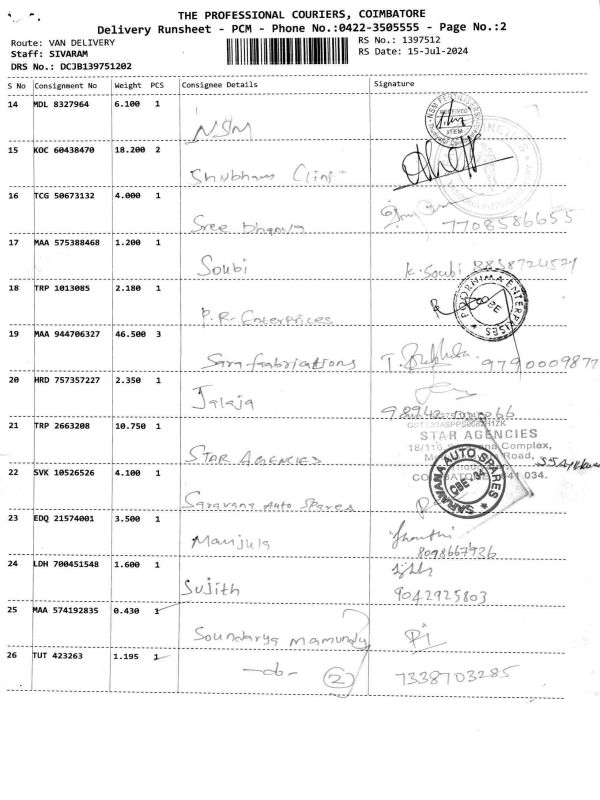 THE PROFESSIONAL COURIERS, COIMBATORE
Delivery Runsheet - PCM - Phone No.:0422-3505555 - Page No.:2
Route: VAN DELIVERY
RS No.: 1397512
Staff: SIVARAM
RS Date: 15-Jul-2024
DRS No.: DCJB139751202
S No Consignment No Weight PCS Consignee Details Signature
14 MDL 8327964 6.100 1
NSM
15 KOC 60438470 18.200 2
Shubham Clini
16 TCG 50673132 4.000 1
Sree
7708586655
17 MAA 575388468 1.200 1
Soubi K. Soubi
18 TRP 1013085 2.180 1
P.R. Enterprices
POORNIMA ENTERPRISES
CBE
19 MAA 944706327 46.500 3
Sara fabrications T. 9790009877
20 HRD 757357227 2.350 1
Jalaja
21 TRP 2663208 10.750 1
STAR AGENCIES
STAR AGENCIES
Complex,
Road,
641 034.
22 SVK 10526526 4.100 1
Saravana Auto Spares
SARAVANA AUTO SPARES
23 EDQ 21574001 3.500 1
Manjula
8098667926
24 LDH 700451548 1.600 1
Sujith
9042925803
25 MAA 574192835 0.430 1
Soundarya mamundy
26 TUT 423263 1.195 1
-do- 2 7338703285